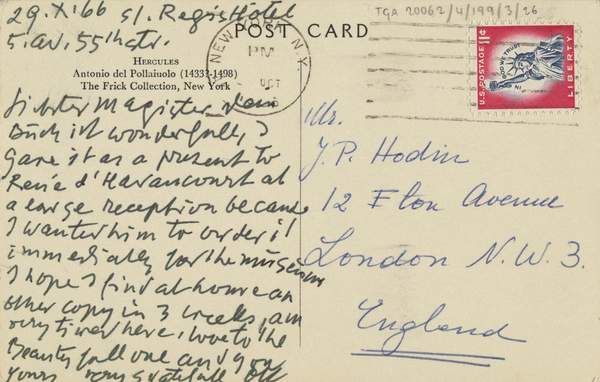 29. X. 66 St. Regis Hotel
5. av. 55th str.
POST CARD
TGA 20062/4/199/3/26
HERCULES
Antonio del Pollaiuolo (1433?-1498)
The Frick Collection, New York
NEW N.Y.
PM
OCT
U.S. POSTAGE 11¢
IN GOD WE TRUST
LIBERTY
Magister
Buch ist wonderfull, I
gave it as a present to
René d'Harnoncourt at
a large reception because
I wanted him to order it
immediately for the museum
I hope I find at home an
other copy in 3 weeks, am
very tired here, love to the
Beauty full one and you
yours very gratefull OK
Mr.
J.P. Hodin
12 Eton Avenue
London N.W.3.
England